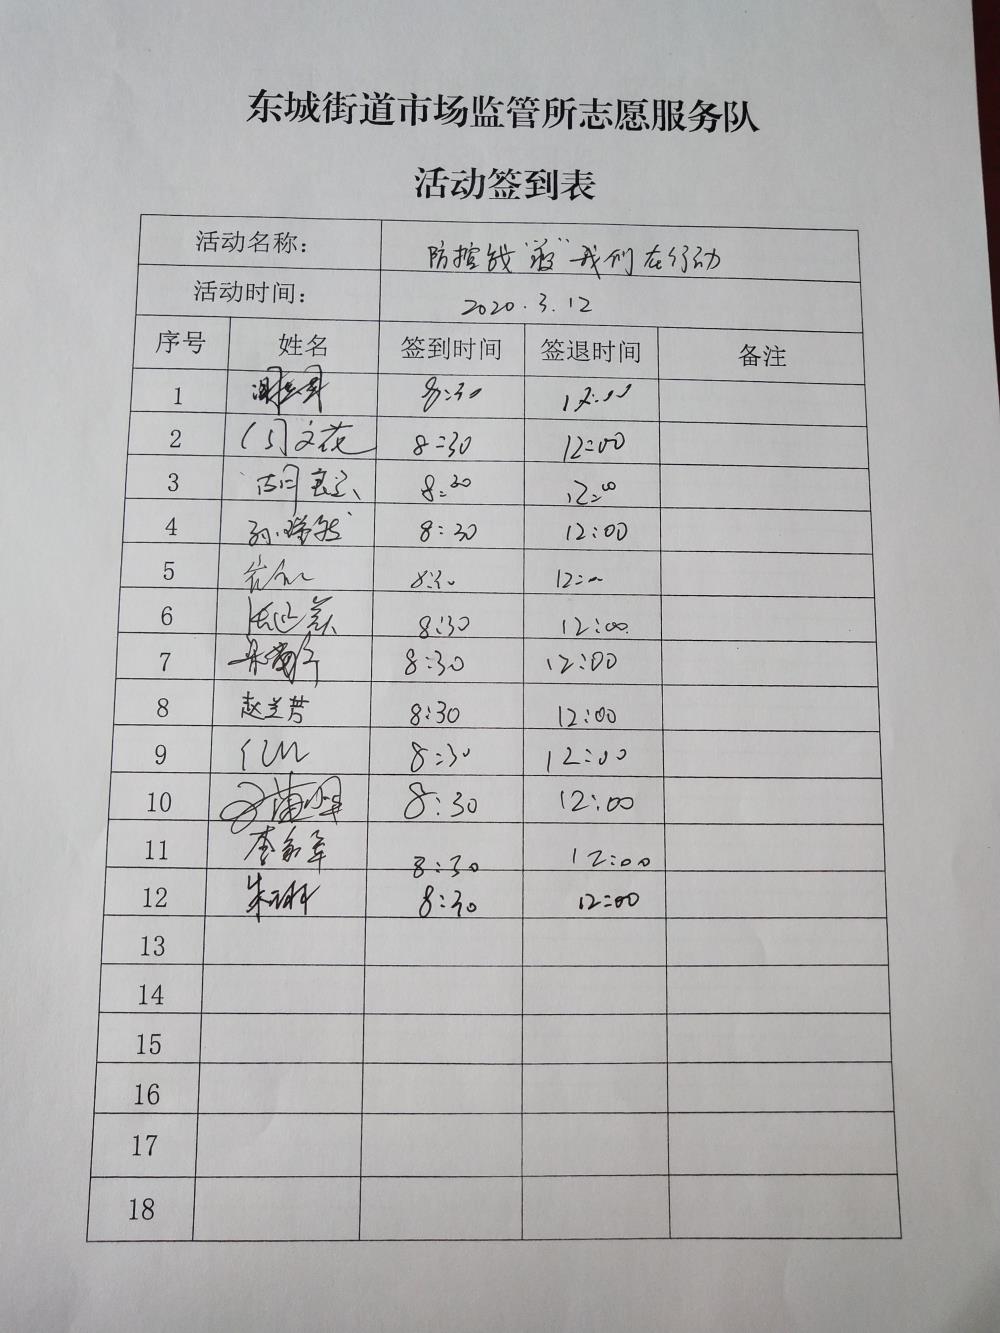 东城街道市场监管所志愿服务队
活动签到表
活动名称： 防控战"疫"我们在行动
活动时间： 2020.3.12
序号 姓名 签到时间 签退时间 备注
1 8:30 12:00
2 文花 8:30 12:00
3 8:30 12:00
4 8:30 12:00
5 8:30 12:00
6 8:30 12:00
7 8:30 12:00
8 赵兰芳 8:30 12:00
9 8:30 12:00
10 8:30 12:00
11 李家军 8:30 12:00
12 8:30 12:00
13
14
15
16
17
18